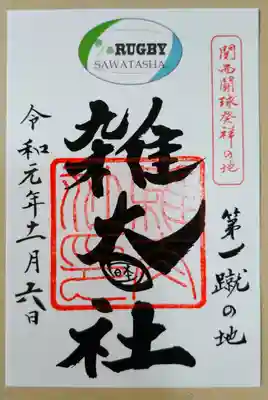 RUGBY
SAWATASHA
関西闘球発祥の地
第一蹴の地
雑太社
日本
令和元年十一月六日